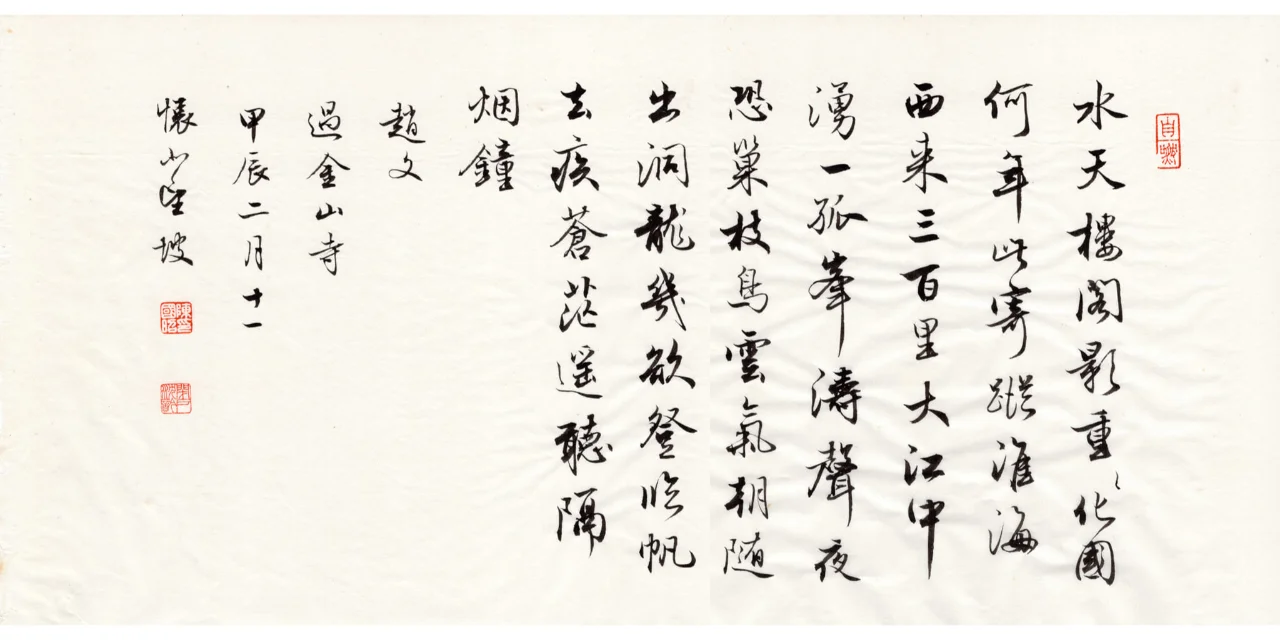 水天樓閣影重〻化國
何年此寄蹤淮海
西来三百里大江中
湧一孤峯濤聲夜
恐巢枝鳥雲氣朝随
出洞龍幾欲登臨帆
去疾蒼茫遥聽隔
烟鐘
趙文
過金山寺
甲辰二月十一
懐小坡